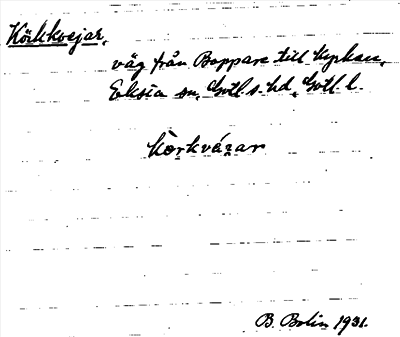 Körkvejar,
väg från Boppare till kyrkan,
Eksta sn, Gotl. s. hd, Gotl. l.
kòrkvázar
B. Bolin 1931.